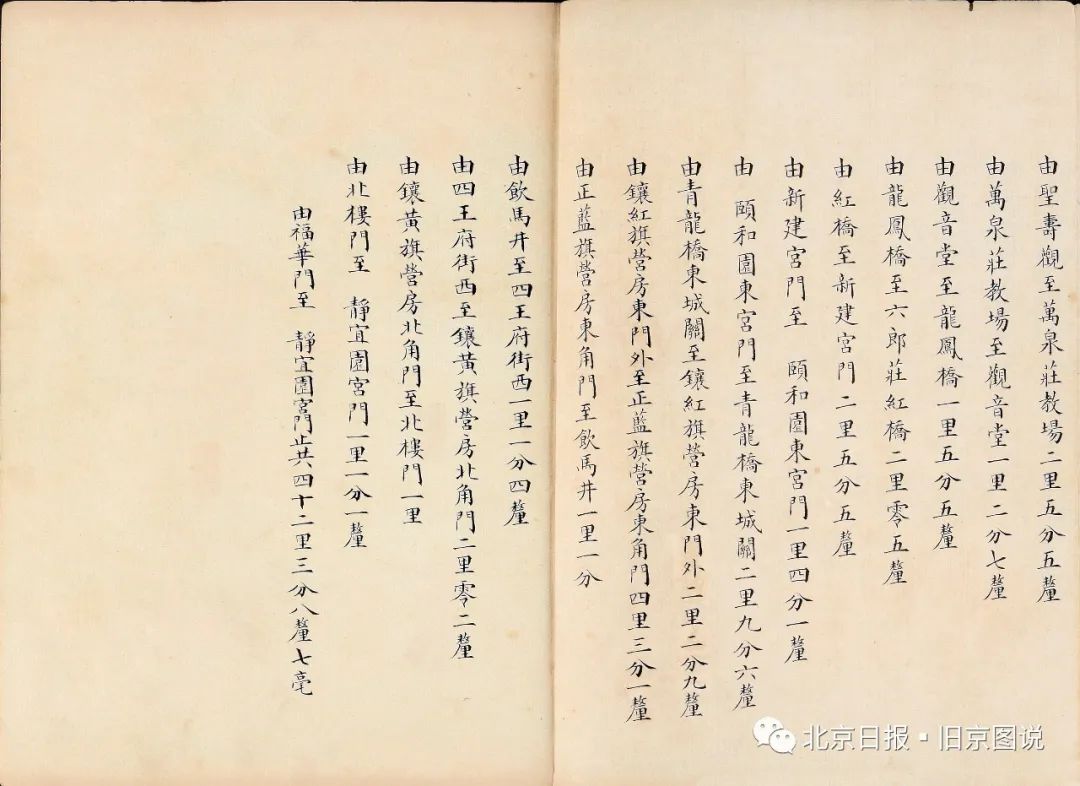 由聖壽觀至萬泉莊教場二里五分五釐
由萬泉莊教場至觀音堂一里二分七釐
由觀音堂至龍鳳橋一里五分五釐
由龍鳳橋至六郎莊紅橋二里零五釐
由紅橋至新建宮門二里五分五釐
由新建宮門至 頤和園東宮門一里四分一釐
由 頤和園東宮門至青龍橋東城關二里九分六釐
由青龍橋東城關至鑲紅旗營房東門外二里二分九釐
由鑲紅旗營房東門外至正藍旗營房東角門四里三分一釐
由正藍旗營房東角門至飲馬井一里一分
由飲馬井至四王府街西一里一分四釐
由四王府街西至鑲黃旗營房北角門二里零二釐
由鑲黃旗營房北角門至北樓門一里
由北樓門至 靜宜園宮門一里一分一釐
由福華門至 靜宜園宮門止共四十二里三分八釐七毫
北京日报·旧京图说